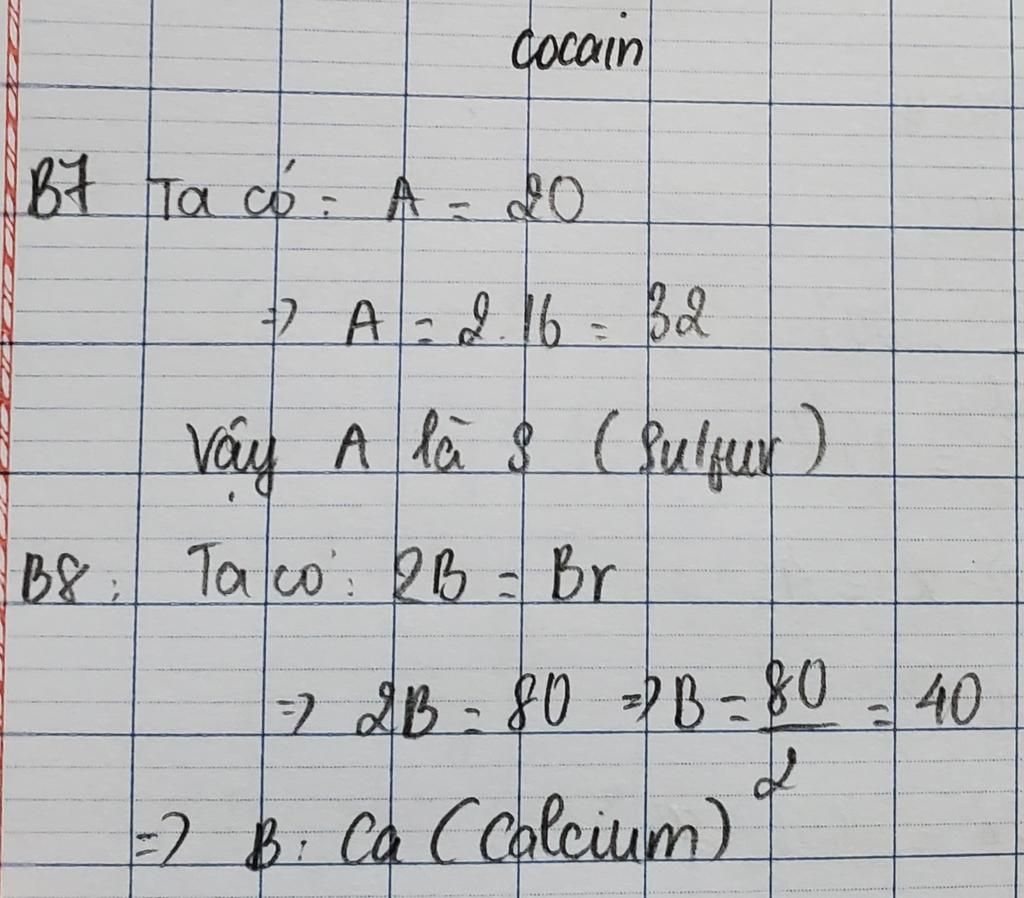 Cocain
B7 Ta có: A = 2O
=> A = 2.16 = 32
Vậy A là S (Sulfur)
B8: Ta có: 2B = Br
=> 2B = 80 => B = 80/2 = 40
=> B: Ca (Calcium)